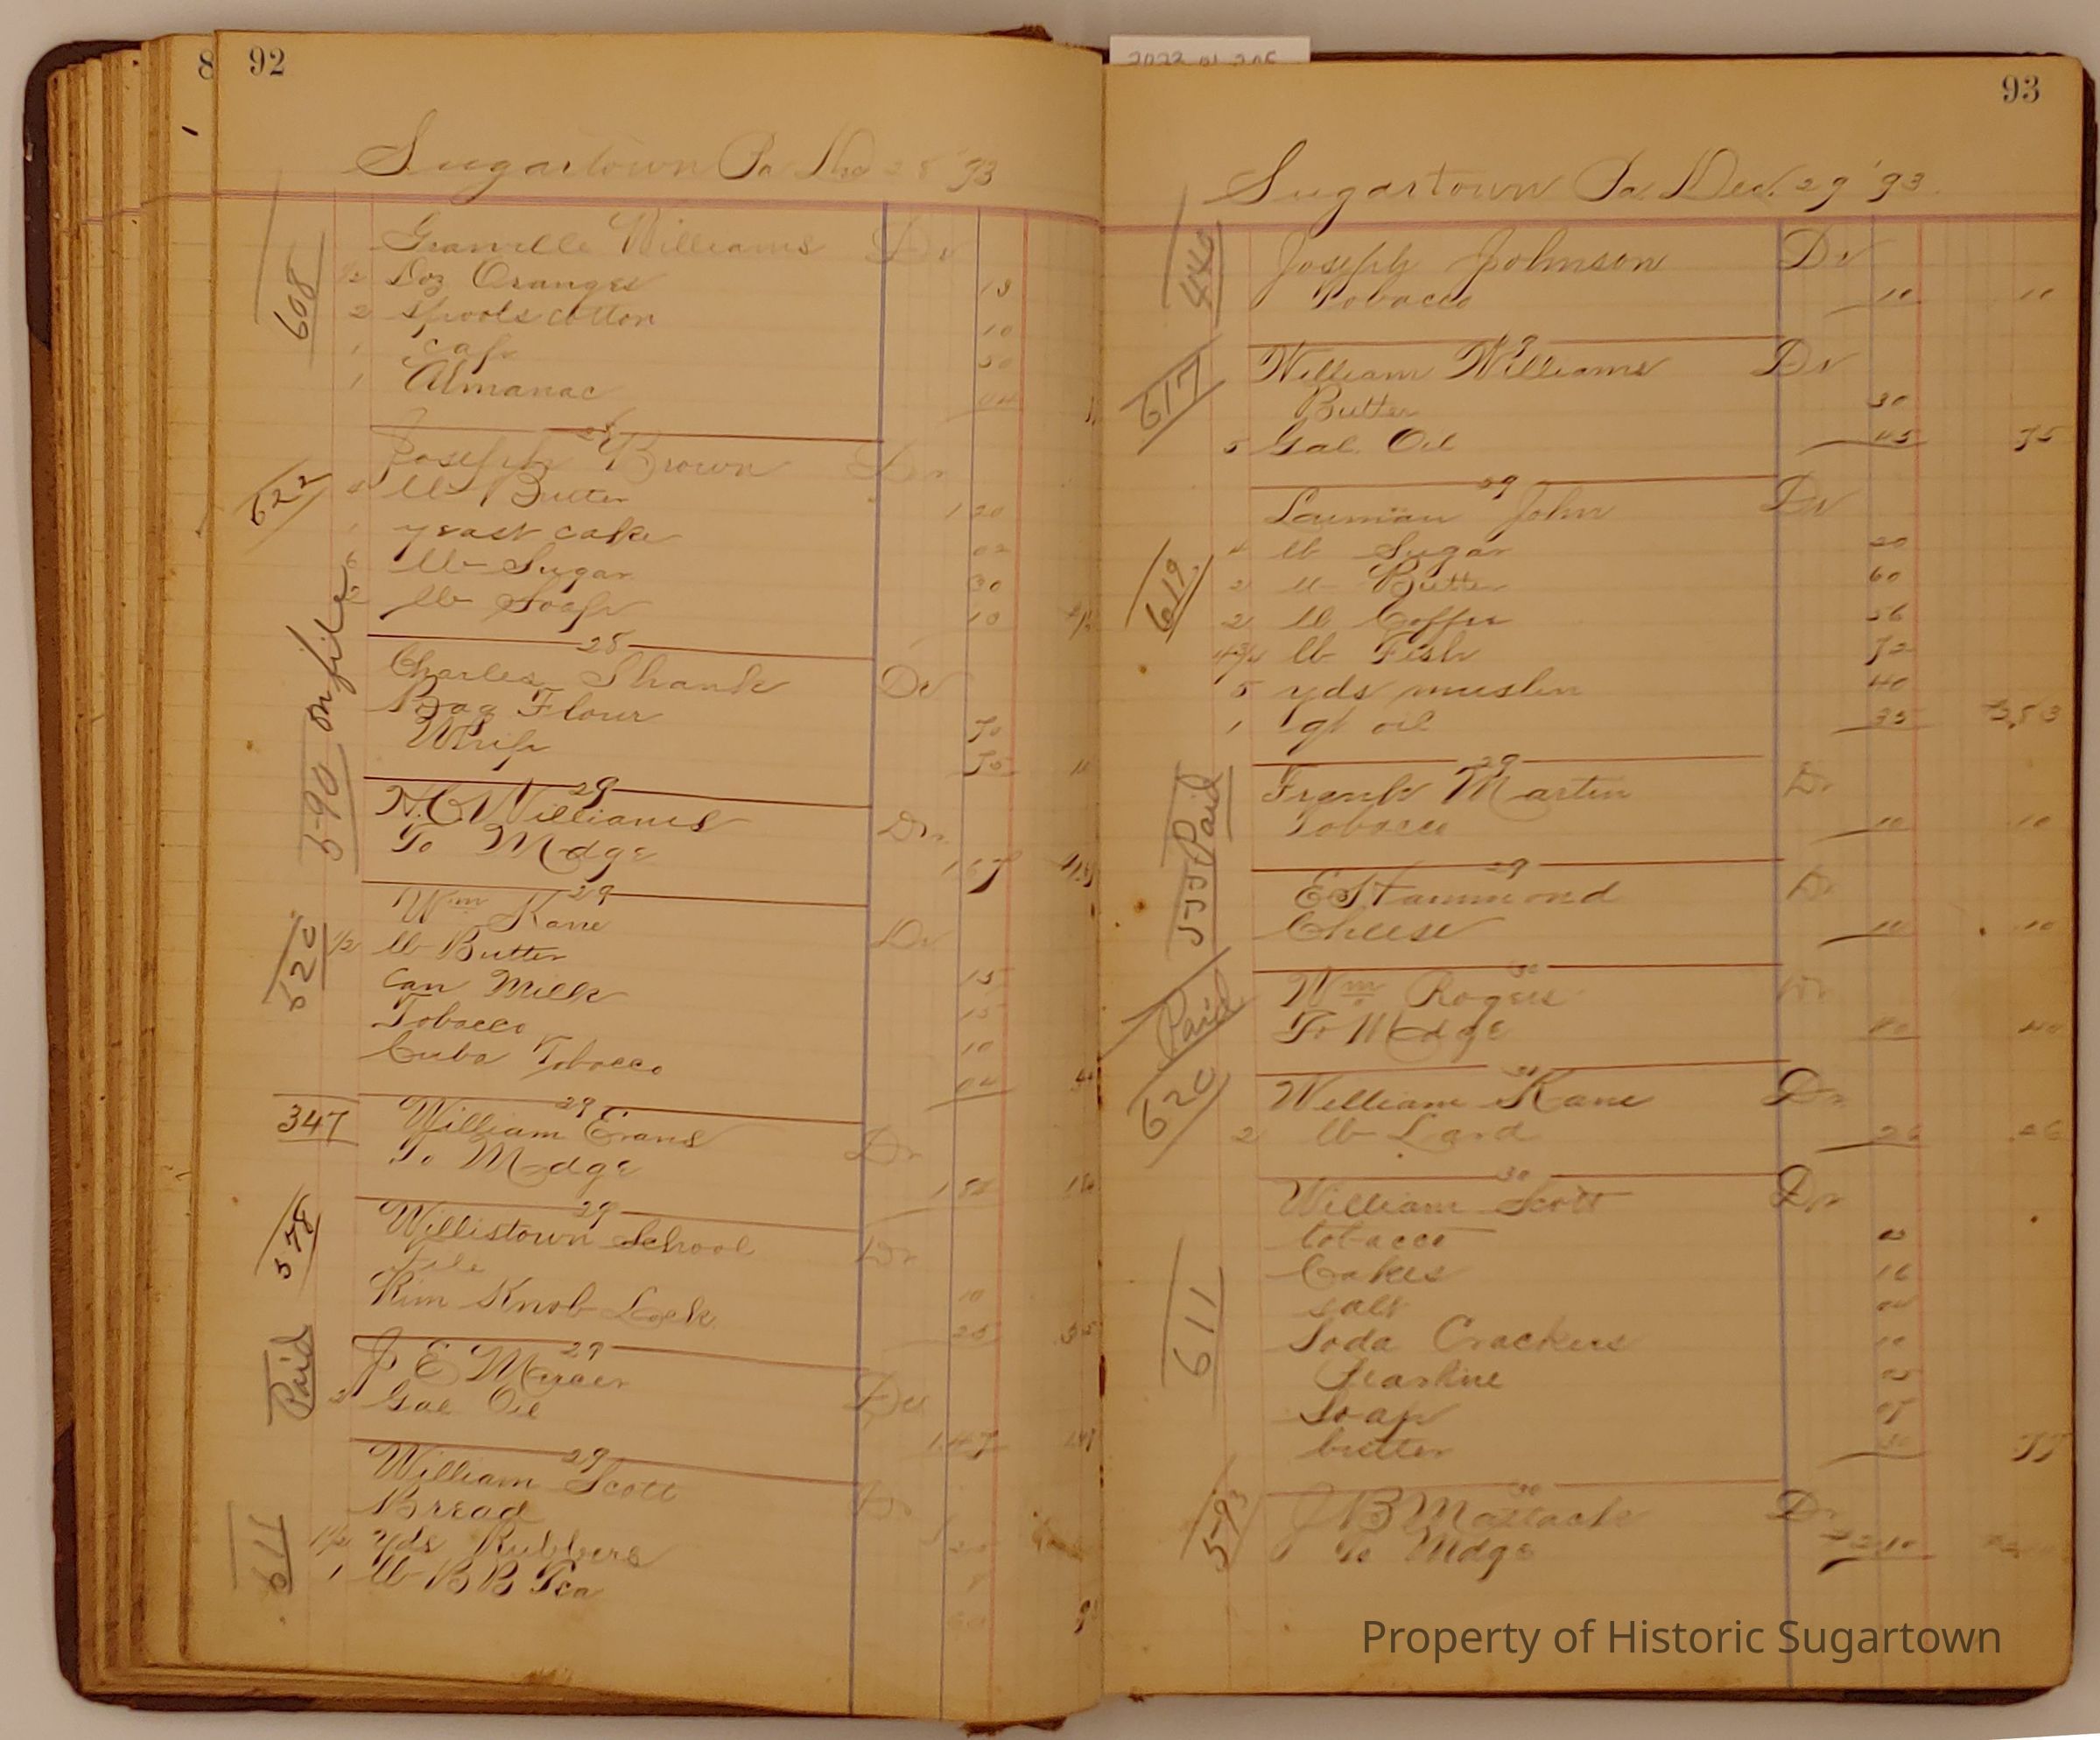 8 92
Sugartown Pa Dec 28 '93
608
Granville Williams Dr
1/2 Doz Oranges 13
2 Spools cotton 10
1 cap 50
1 Almanac 04
28
622
Joseph Brown Dr
4 lb Butter 1 20
1 yeast cake 02
6 lb Sugar 30
2 lb Soap 10
28
on file
Charles Shank Dr
Bag Flour 70
Whip
29
590
N. C. Williams Dr
To Mdge
29
620
Wm Kane Dr
1/2 lb Butter 15
Can Milk 15
Tobacco 10
Cuba Tobacco 04
29
347
William Evans Dr
To Mdge
29
578
Willistown School Dr
File 10
Rim Knob Lock 25
29
Paid
J E Mercer Dr
2 Gal Oil
29
611
William Scott Dr
Bread
1 1/2 yds Rubbers
1 lb B B Tea
2023.01.205
93
Sugartown Pa. Dec. 29 '93
440
Joseph Johnson Dr
Tobacco 10 10
29
617
William Williams Dr
Butter 30
5 Gal. Oil 45 75
29
619
John Dr
4 lb Sugar 20
2 lb Butter 60
2 lb Coffee 56
lb Fish 72
5 yds muslin 40
1 gt oil 35
29
JJJ Paid
Frank Martin Dr
Tobacco 10 10
29
E Hammond Dr
Cheese 10 10
30
Paid
Wm Rogers Dr
To Mdge 40 40
30
620
William Kane Dr
2 lb Lard 26 26
30
611
William Scott Dr
tobacco
Cakes
salt 04
Soda Crackers 10
Pearline 05
Soap
butter
30
593
J B Dr
To Mdge
Property of Historic Sugartown